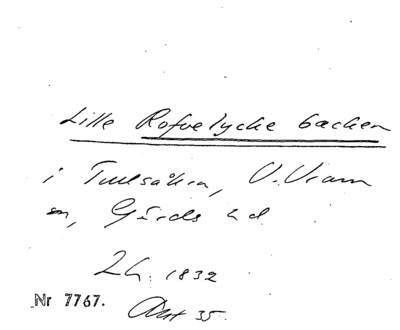 Lille Rofvelycke backen
i Tullsåkra, V. Vram
sn, Gärds hd
Lh. 1832
Nr 7767. Akt 35.